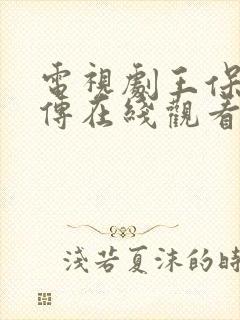 電視劇王保
傳在綫觀看
淺若夏沫的時